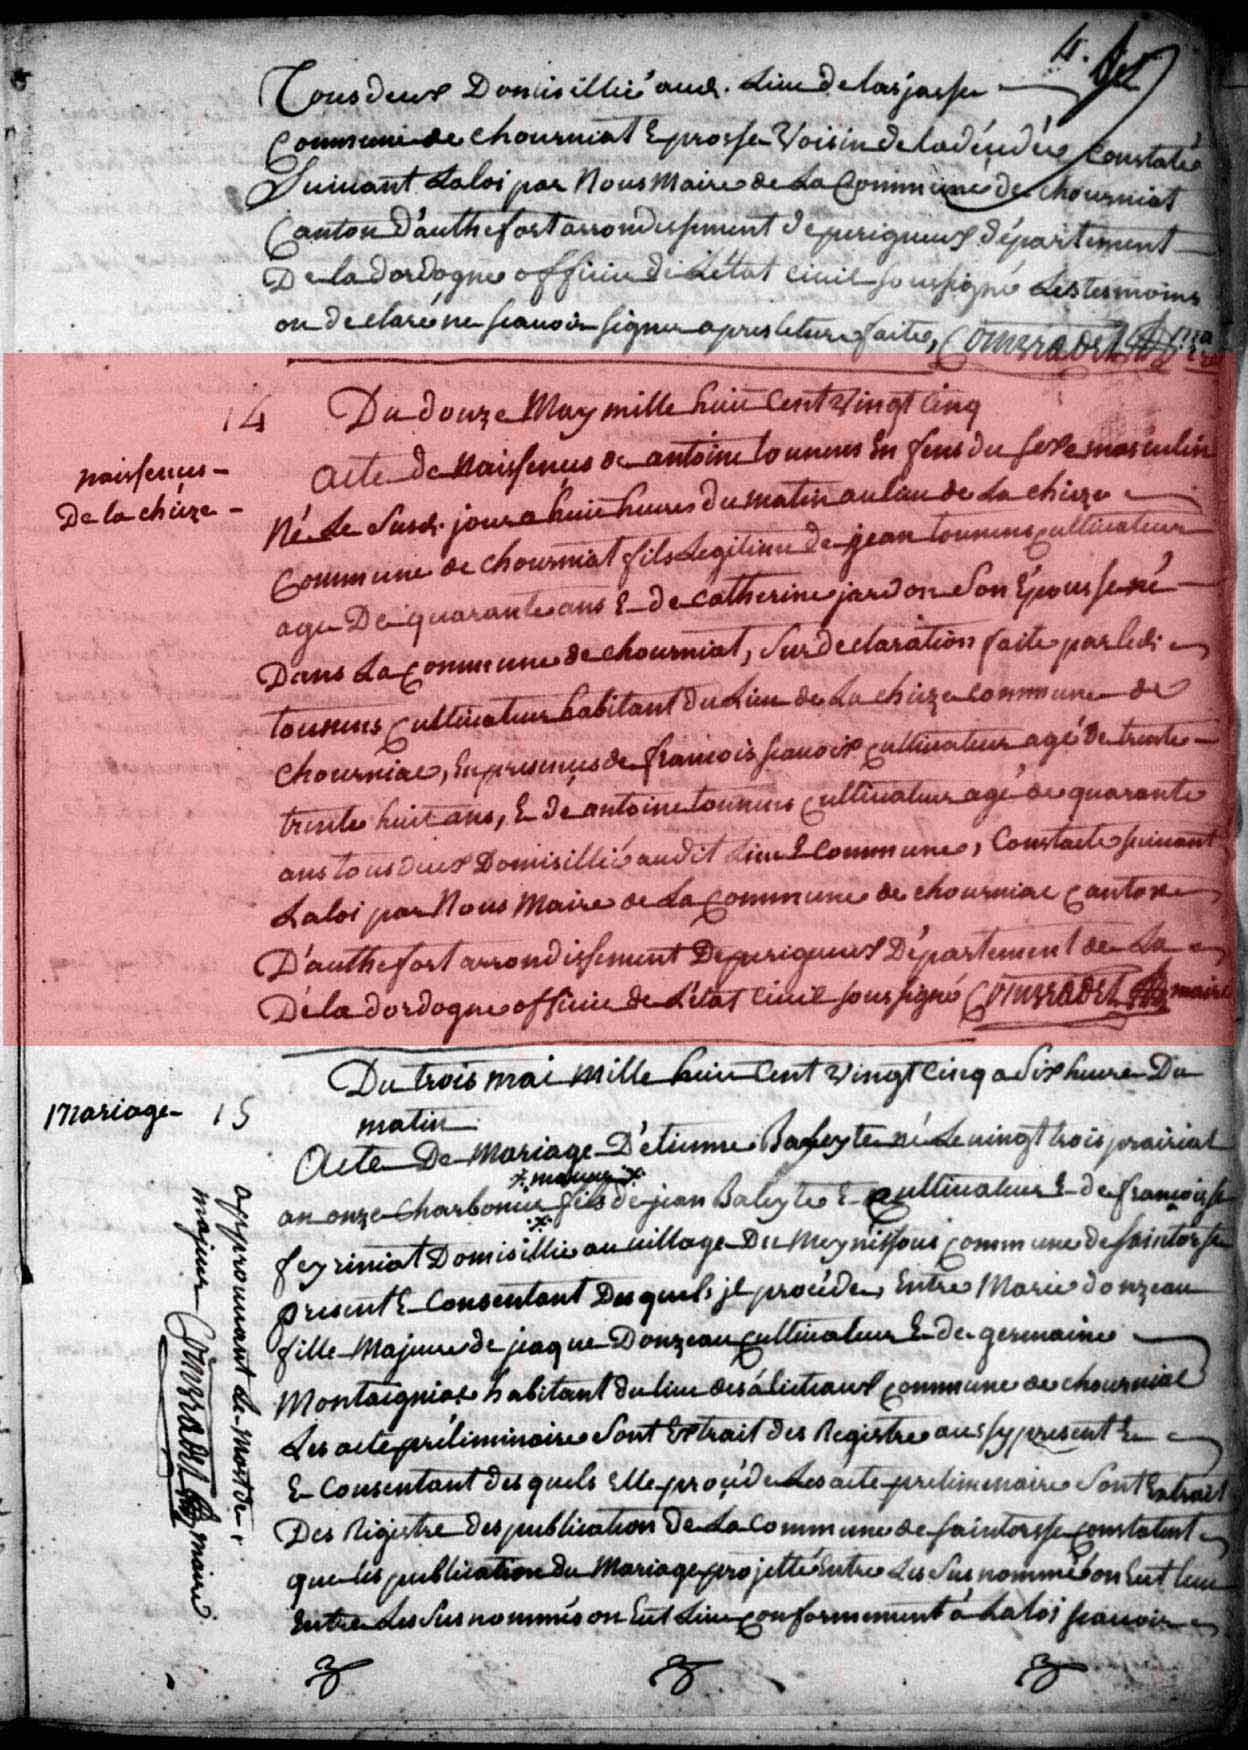 4.
Tous deux Domisillié aud. Lieu de las jasse
Commune de chourniat E prosse voisin de la dédée constaté
Suivant La loi par Nous Maire de La Commune de chourniat
Canton D'authefort arrondissement de perigueux département
De la dordogne officier de L'état civil soussigné Les tesmoins
on declaré ne scauoir signer apres leture faite, Comeradel
14
Du douze May mille huit Cent vingt cinq
naissences
De la chieze
Acte de Naissences de antoine tounens En fens du sexe masculin
Né Le Susd. jour a huit heures du matin au lieu de La chieze
Commune de chourniat fils Legitime de jean tounens cultivateur
age De quarante ans E de catherine jardon Son Épousse né
Dans La commune de chourniat, Sur declaration faite par ledi
tounens cultivateur habitant du Lieu de La chieze commune de
chourniac, En presences de francois scauoix cultivateur agé de trente
trente huit ans, E de antoine tounens cultivateur agé de quarante
ans tous deux Domisillié audit Lieu E commune, Constate suivant
La loi par Nous Maire de La commune de chourniac canton
D'authefort arrondissement De perigueux Département de La
De la dordogne officier de L'état civil soussigné Comeradel maire
Du trois mai mille huit Cent vingt cinq a dix heure Du
Mariage 15
matin
Acte De Mariage D'étienne Baleyte né Le vingt trois prairial
* majeur *
an onze charbonier fils de jean Baleyte E cultivateur E de francoise
feyriniat Domisillié au village Du Meynissous commune de saintorse
present E Consentant Desquels il procéde, Entre Marie donzeau
fille Majeure de jeaque Donzeau cultivateur E de germaine
Montaigniac habitant du lieu des commune de chourniac
Les acte préliminaire Sont Extrait des Registre aussy present E
E Consentant des quels Elle procéde Les acte preliminaire Sont Extrait
Des Registre des publication de La commune de saintorse constatent
que les publication du Mariage projetté Entre Les Sus nommé on Eut lieu
Entre Les Sus nommés on Eut Lieu conformement à La loi scauoir
approuvant le mot de
majeur Comeradel maire